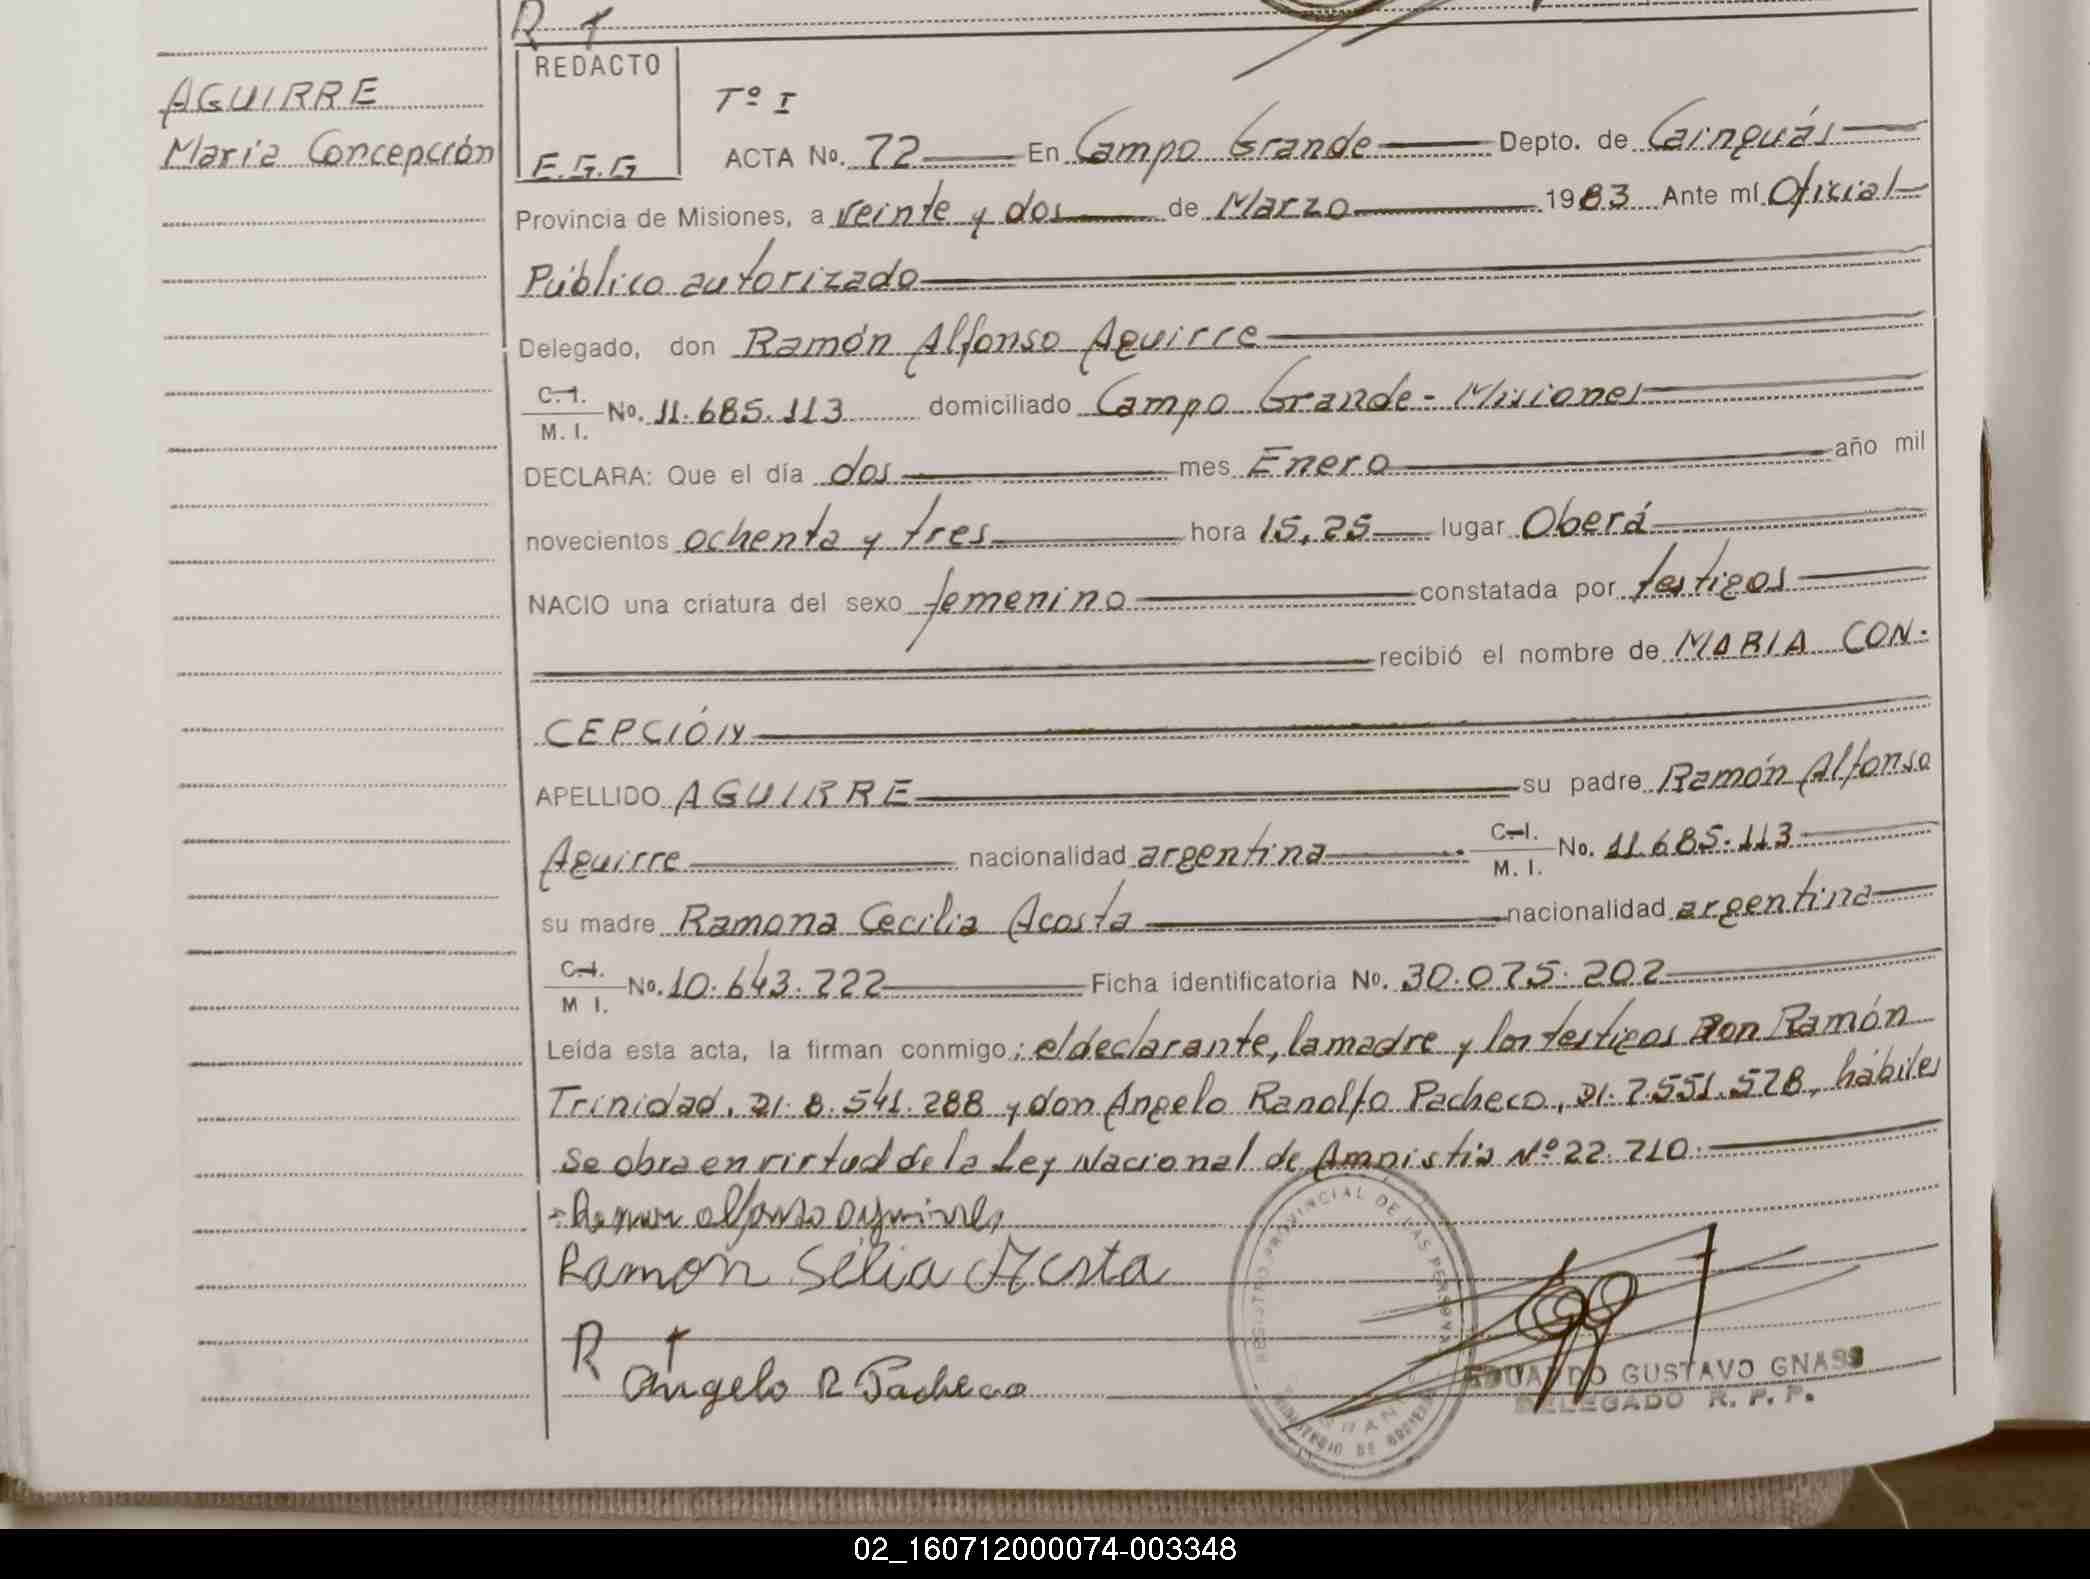 R †
AGUIRRE
Maria Concepción
REDACTO
E.G.G
Tº I
ACTA No. 72 En Campo Grande Depto. de Cainguás
Provincia de Misiones, a veinte y dos de Marzo 1983 Ante mí Oficial
Público autorizado
Delegado, don Ramón Alfonso Aguirre
C.I. M.I. No. 11.685.113 domiciliado Campo Grande - Misiones
DECLARA: Que el día dos mes Enero año mil
novecientos ochenta y tres hora 15,25 lugar Oberá
NACIO una criatura del sexo femenino constatada por testigos
recibió el nombre de MARIA CON-
CEPCIÓN
APELLIDO AGUIRRE su padre Ramón Alfonso
Aguirre nacionalidad argentina C.I. M.I. No. 11.685.113
su madre Ramona Cecilia Acosta nacionalidad argentina
C.I. M I. No. 10.643.222 Ficha identificatoria No. 30.075.202
Leída esta acta, la firman conmigo: el declarante, la madre y los testigos Don Ramón
Trinidad, 8.541.288 y don Angelo Ranolfo Pacheco, 7.551.578, hábiles
Se obra en virtud de la Ley Nacional de Amnistia Nº 22.710.
Ramon alfonso aguirre
Ramon Sélia Acsta
R †
Angelo R Pacheco
REGISTRO PROVINCIAL DE LAS PERSONAS
MINISTERIO DE GOBIERNO
EDUARDO GUSTAVO GNASS
DELEGADO R. P. P.
02_160712000074-003348